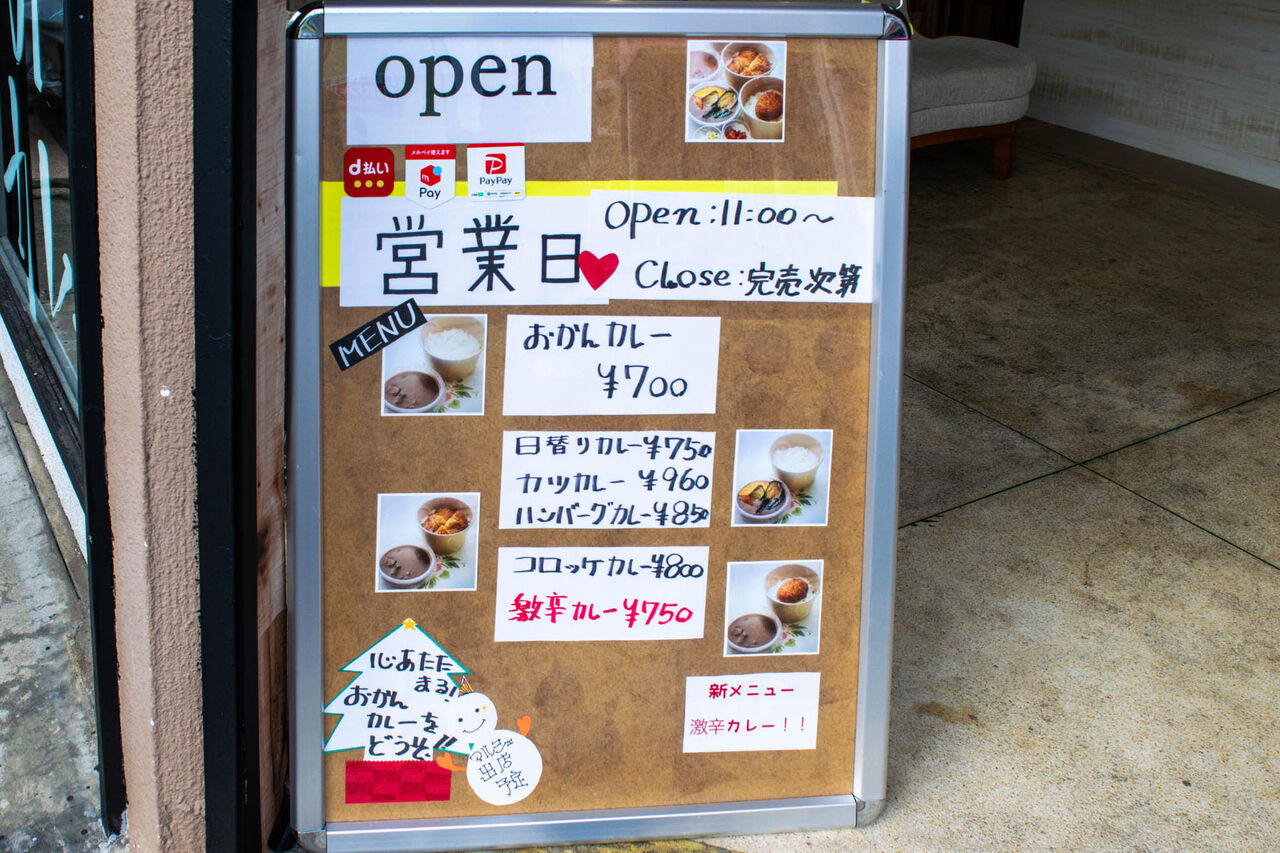 open
d払い
メルペイ使えます
Pay
PayPay
営業日
Open:11:00~
Close:完売次第
MENU
おかんカレー
¥700
日替りカレー¥750
カツカレー ¥960
ハンバーグカレー¥850
コロッケカレー¥800
激辛カレー¥750
心あたた
まる!
おかん
カレーを
どうぞ!!
マルシェ
出店
予定
新メニュー
激辛カレー!!